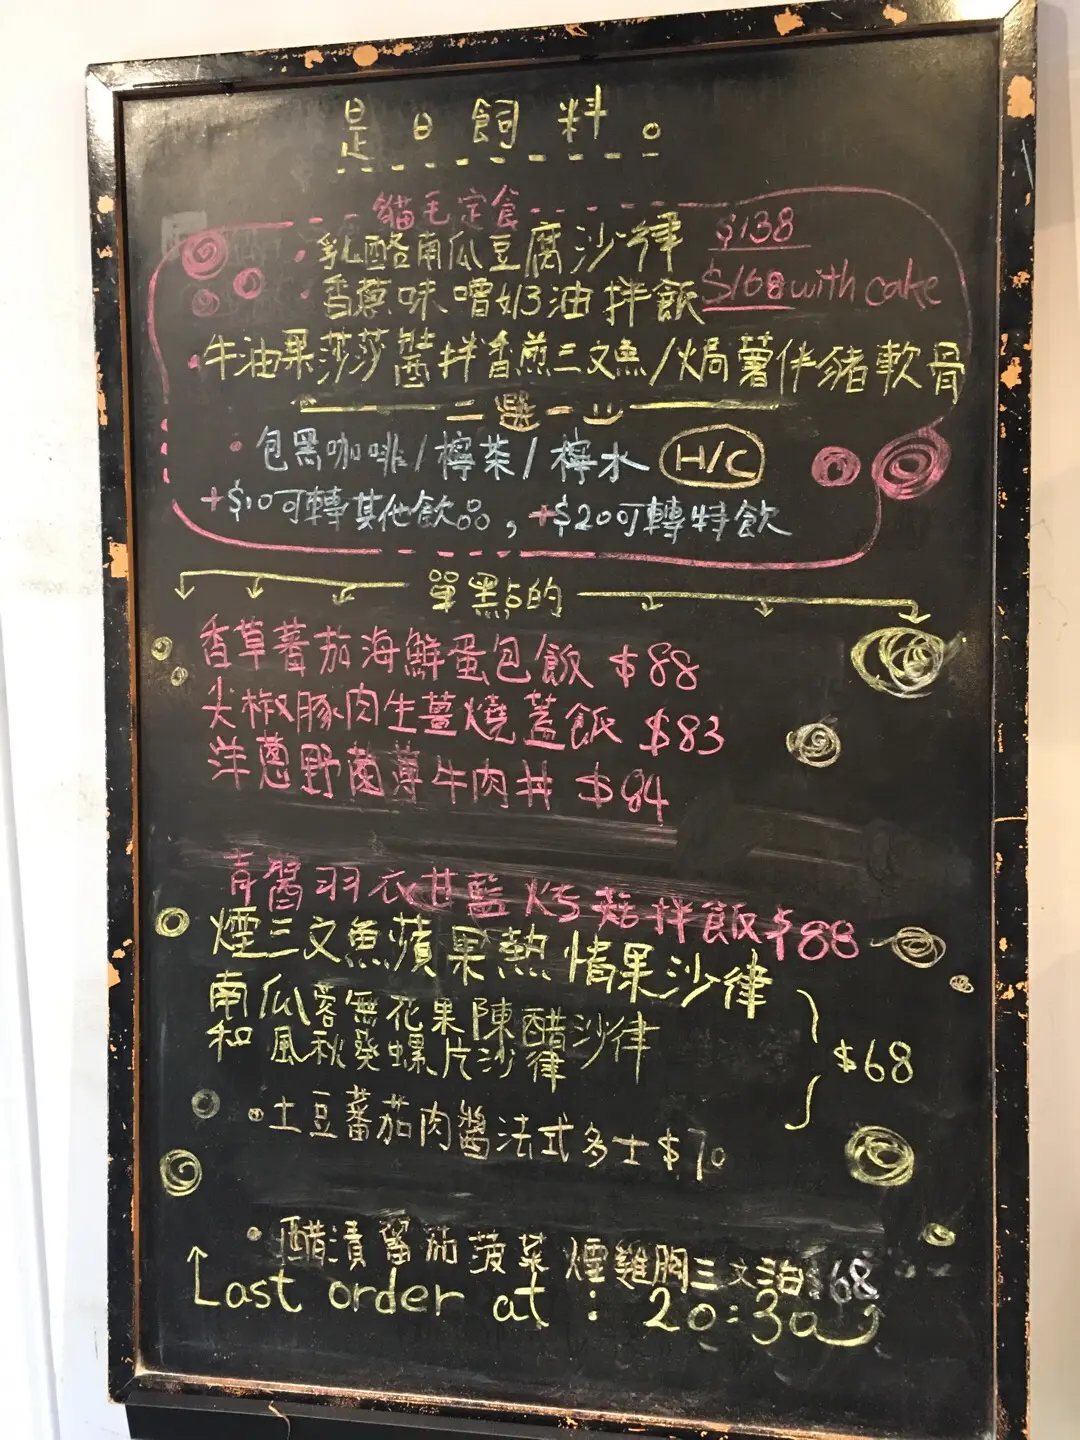 是日飼料。
貓毛定食
乳酪南瓜豆腐沙律 $138
香蔥味噌奶油拌飯 $168 with cake
牛油果莎莎醬拌香煎三文魚/焗薯伴豬軟骨
二選一
包黑咖啡/檸茶/檸水 H/C
+$10可轉其他飲品,+$20可轉特飲
單點的
香草蕃茄海鮮蛋包飯 $88
尖椒豚肉生薑燒蓋飯 $83
洋蔥野菌薄牛肉丼 $84
青醬羽衣甘藍烤菇拌飯 $88
煙三文魚蘋果熱情果沙律
南瓜蓉無花果陳醋沙律
和風秋葵螺片沙律
$68
土豆蕃茄肉醬法式多士 $70
醋漬蕃茄菠菜煙雞胸三文治 $68
Last order at : 20:30